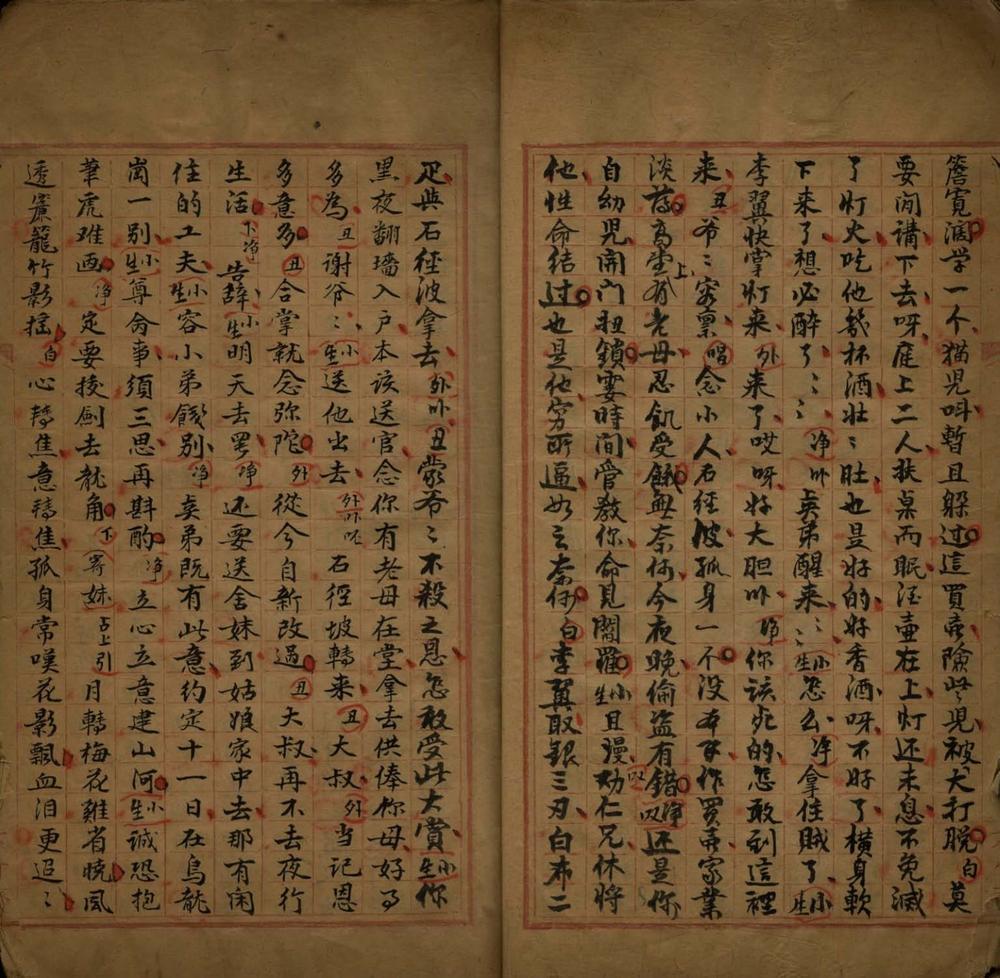 簷寬濶学一个猫児呌暫且躲过這買賣險些児被犬打脱白莫
要闲講下去呀庭上二人扶桌而眠注壷在上灯还未息不免滅
了灯火吃他幾杯酒壮〻肚也是好的好香酒呀不好了橫身軟
下来了想必醉了〻〻净卟贤弟醒来〻〻小生怎么净拿住贼了小生
李翼快掌灯来外来了哎呀好大胆卟净你该死的怎敢到這裡
来丑爷〻容禀唱念小人石經波孤身一不没有本作買賣家業
淡薄高堂上有老母忍飢受餓無奈何今夜晚偷盗有错净叹还是你
自幼児開門扭鎖霎時间管教你命見閻羅小生且漫叹劝仁兄休将
他性命结过也是他穷所逼如之奈何白李翼取銀三刃白布二
疋與石径波拿去外卟丑蒙爷〻不殺之恩怎敢受此大賞小生你
黑夜翻墻入戶本该送官念你有老母在堂拿去供俸你母好为
多為丑谢爷〻小生送他出去外卟吒石径坡轉来丑大叔外当记恩
多意多丑合掌就念弥陀外從今自新改過丑大叔再不去夜行
生活下净告辞小生明天去罢净还要送舍妹到姑娘家中去那有闲
住的工夫小生容小弟餞别净贤弟既有此意约定十一日在烏龍
崗一别小生尊舍事須三思再斟酌净立心立意建山河小生诚恐抱
筆虎难画净定要挍劍去龍角下寄妹占上引月轉梅花雞省晚風
透簾籠竹影摇白心轉焦意轉焦孤身常嘆花影飄血泪更追〻